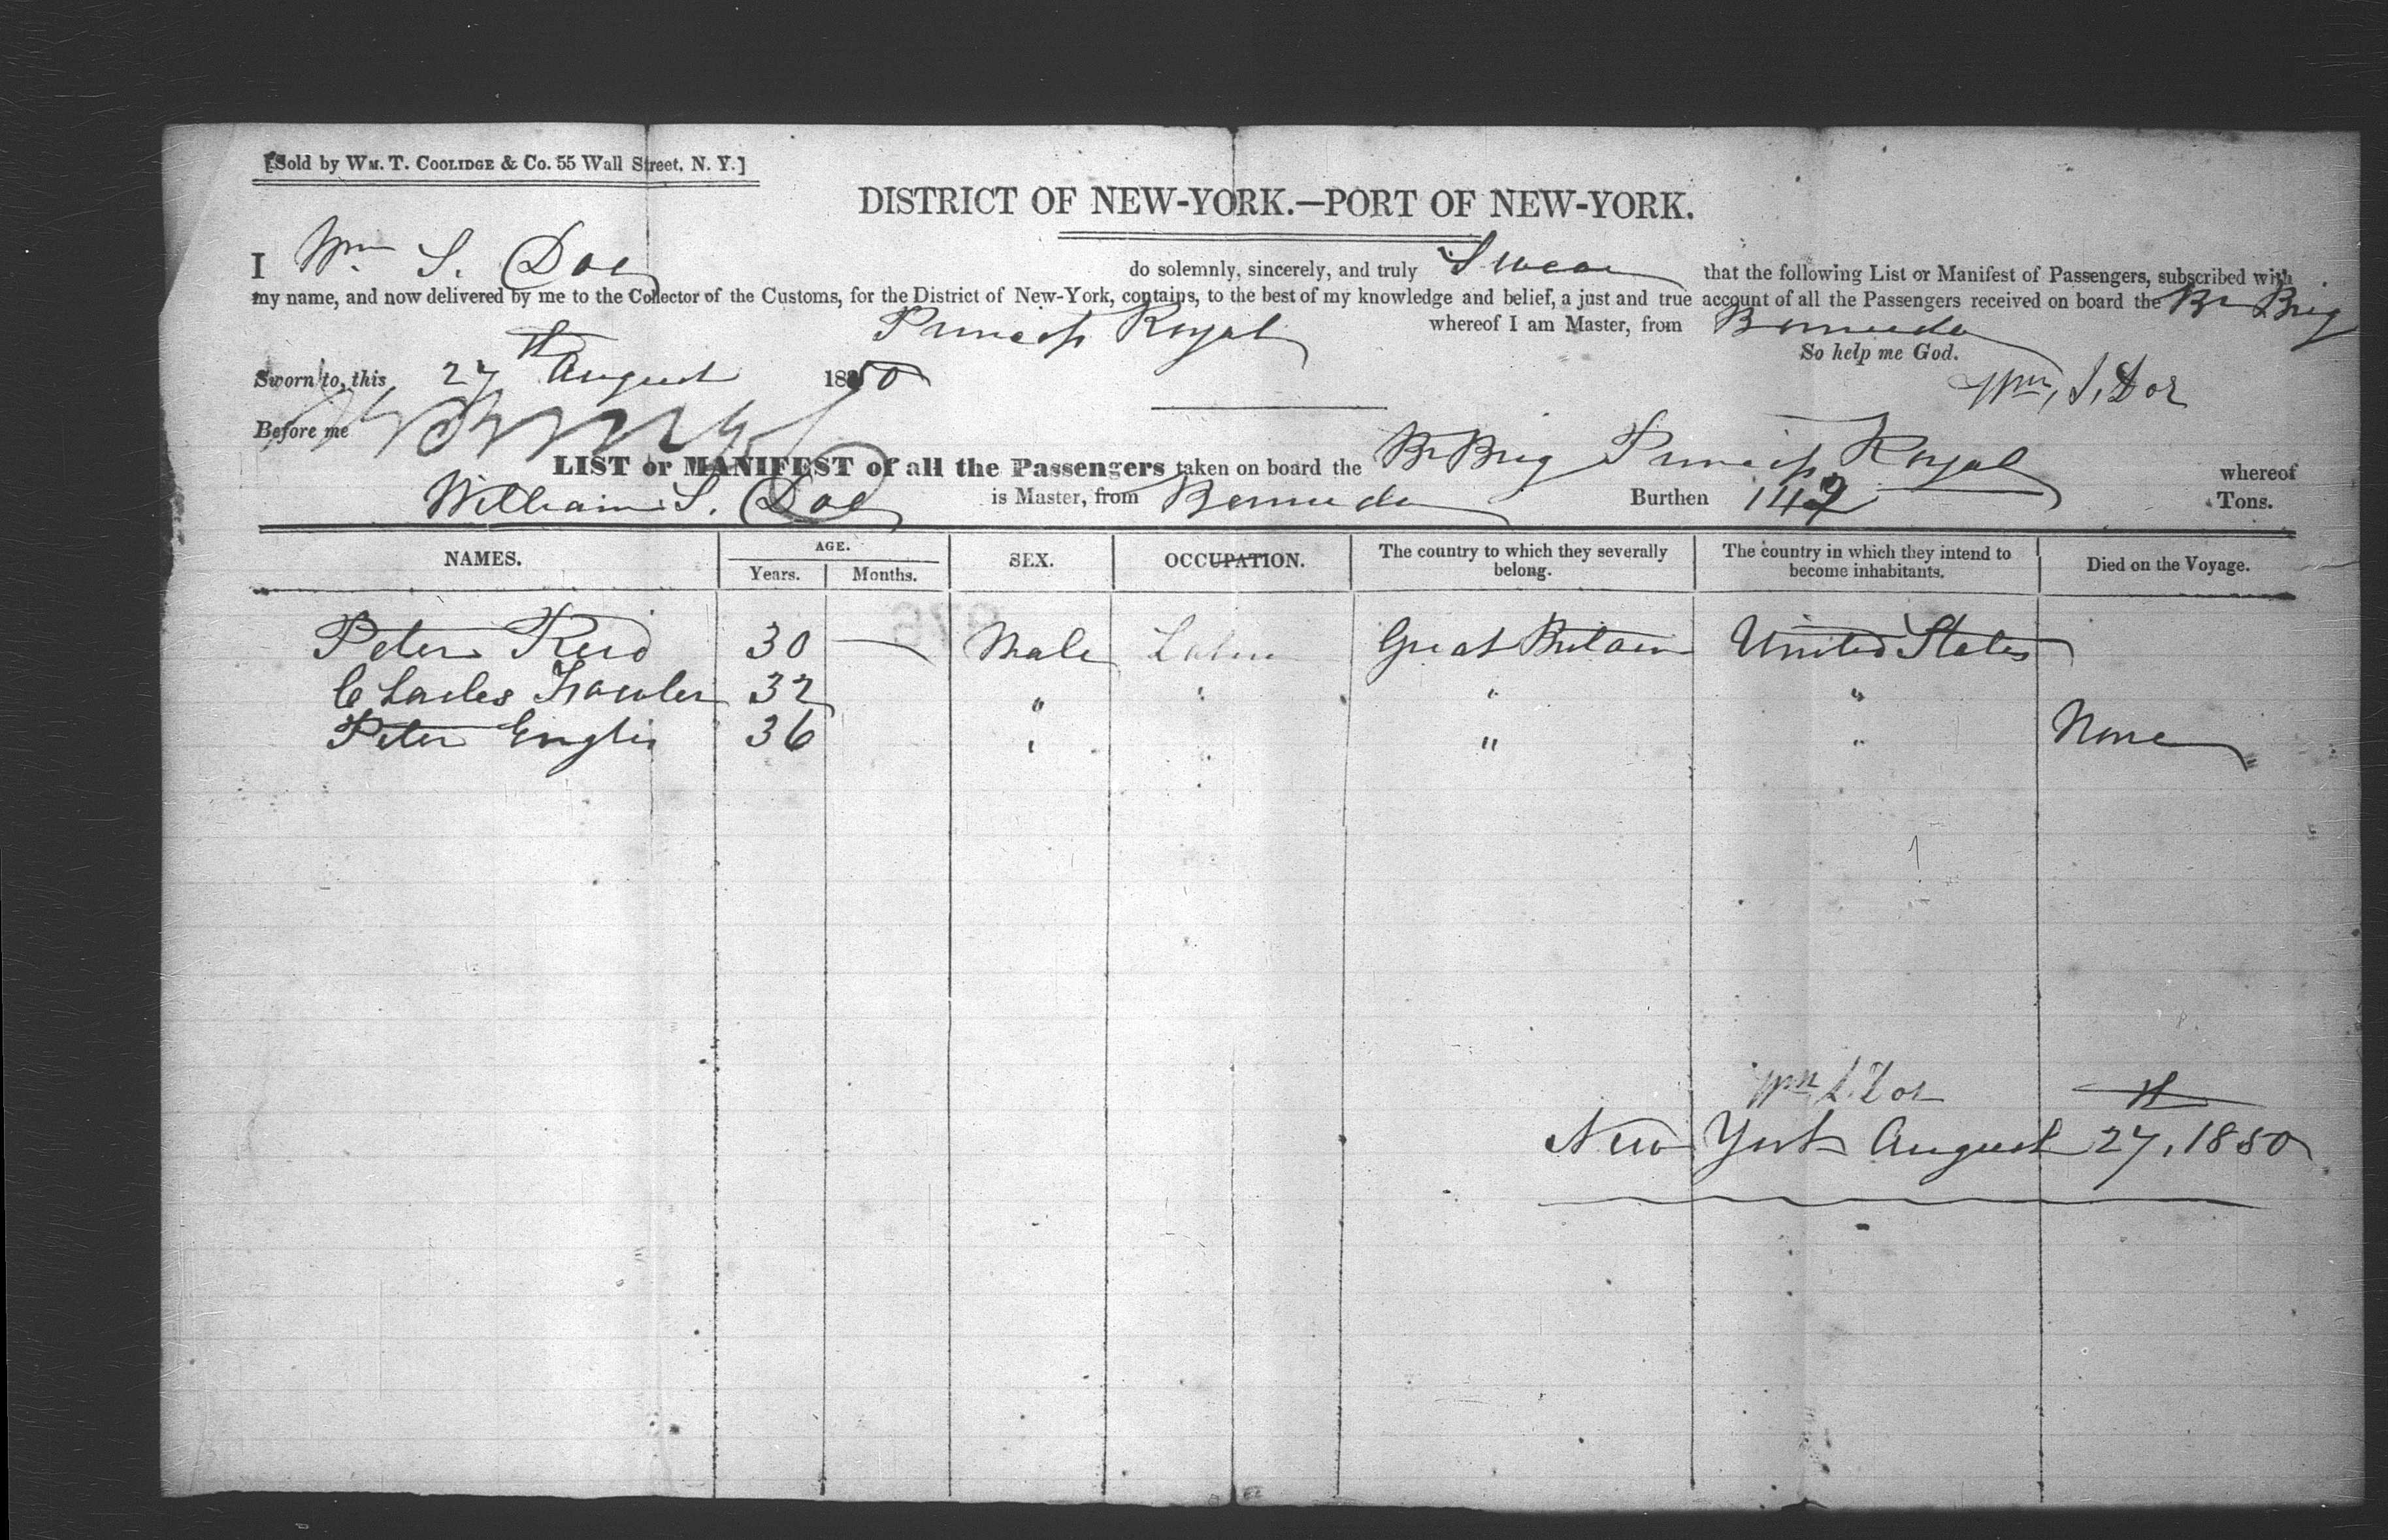 [Sold by WM. T. COOLIDGE & Co. 55 Wall Street, N. Y.]
DISTRICT OF NEW-YORK.—PORT OF NEW-YORK.
I Wm. S. Doe do solemnly, sincerely, and truly Swear that the following List or Manifest of Passengers, subscribed with
my name, and now delivered by me to the Collector of the Customs, for the District of New-York, contains, to the best of my knowledge and belief, a just and true account of all the Passengers received on board the Br Brig
Princess Royal whereof I am Master, from Bermuda
So help me God.
Sworn to, this 27th August 1850
Wm, S, Doe
Before me
LIST or MANIFEST of all the Passengers taken on board the Br Brig Princess Royal whereof
William S. Doe is Master, from Bermuda Burthen Tons.
NAMES. AGE. SEX. OCCUPATION. The country to which they severally belong. The country in which they intend to become inhabitants. Died on the Voyage.
Years. Months.
Peter Reid 30 — Male Labor Great Britain United States
Charles 32 " " " "
Peter Englis 36 " " " " None
Wm S. Doe
New York August 27th, 1850